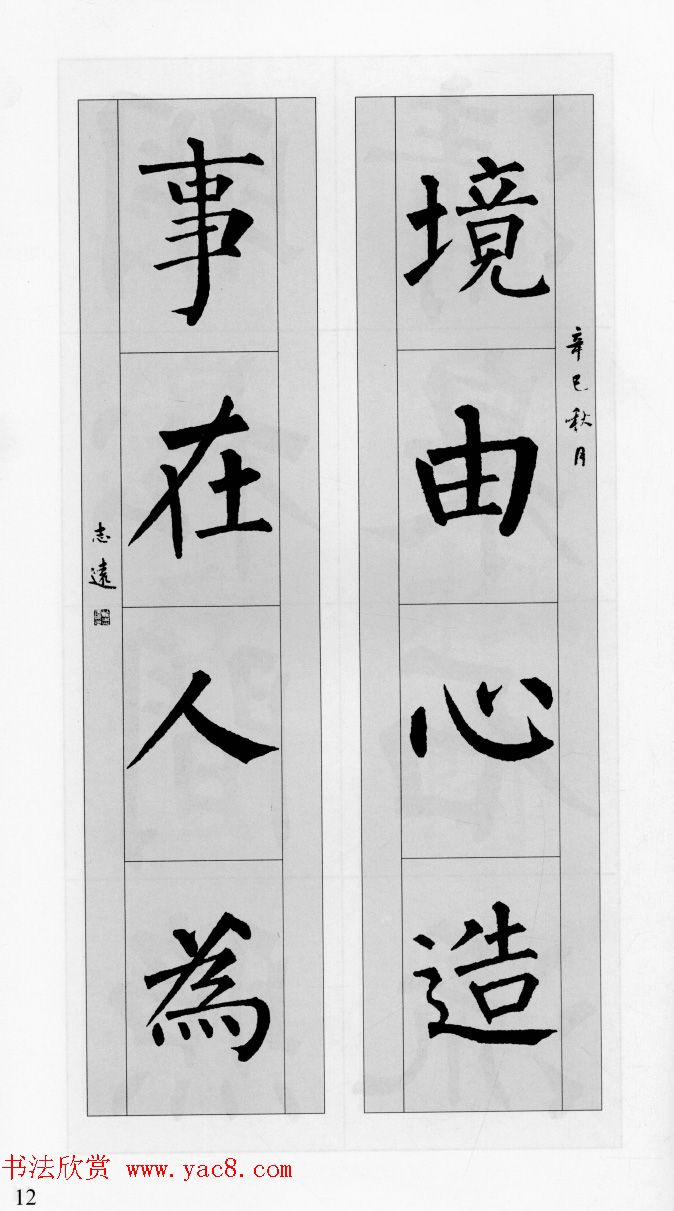 境由心造
辛巳秋月
事在人為
志遠
书法欣赏 www.yac8.com
12